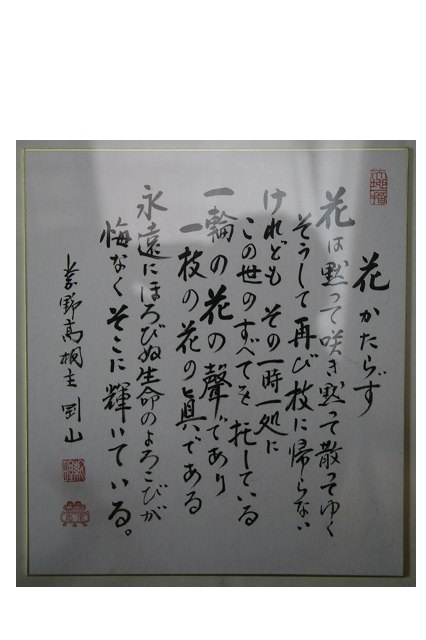 花かたらず
花は黙って咲き黙って散ってゆく
そうして再び枝に帰らない
けれども その一時一処に
この世のすべてを托している
一輪の花の聲であり
一枝の花の眞である
永遠にほろびぬ生命のよろこびが
悔なくそこに輝いている。
紫野高桐主 剛山